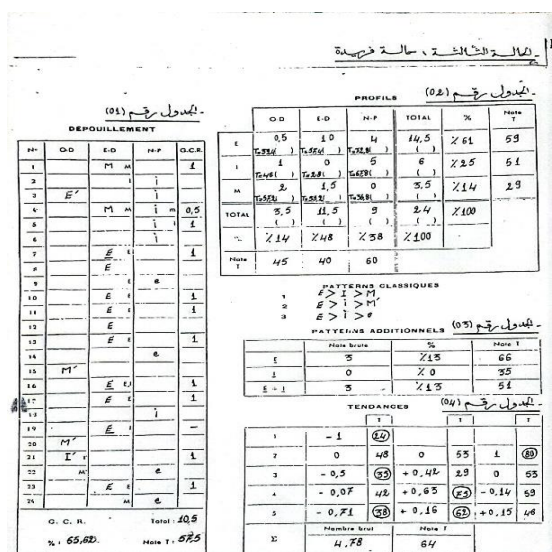 الحالة الثالثة، حالة فريدة
الجدول رقم (01)
DEPOUILLEMENT
N° O-D E-D N-P G.C.R.
1 M M 1
2 I i
3 E' i
4 M M i m 0,5
5 i i 1
6 i
7 E E 1
8 E
9 E e
10 E E 1
11 E E 1
12 E
13 E E 1
14 e
15 M'
16 E E 1
17 E E 1
18 i
19 E I -
20 M'
21 I' I 1
22 M' e
23 E E 1
24 M e
G. C. R. Total : 10,5
% : 65,62. Note T : 57,5
الجدول رقم (02)
PROFILS
O-D E-D N-P TOTAL % Note T
E 0,5 10 4 14,5 % 61 59
I 1 0 5 6 % 25 51
M 2 1,5 0 3,5 % 14 29
TOTAL 3,5 11,5 9 24 % 100
% % 14 % 48 % 38 % 100
Note T 45 40 60
PATTERNS CLASSIQUES
1 E > I > M
2 E > i > M'
3 E > i > e
PATTERNS ADDITIONNELS الجدول رقم (03)
Note brute % Note T
E 3 % 13 66
I 0 % 0 35
E + I 3 % 13 51
TENDANCES الجدول رقم (04)
T T T
1 - 1 24
2 0 48 0 53 1 80
3 - 0,5 35 + 0,42 29 0 53
4 - 0,07 42 + 0,63 73 - 0,14 59
5 - 0,71 38 + 0,16 62 + 0,15 46
Nombre brut Note T
Σ 4,78 64